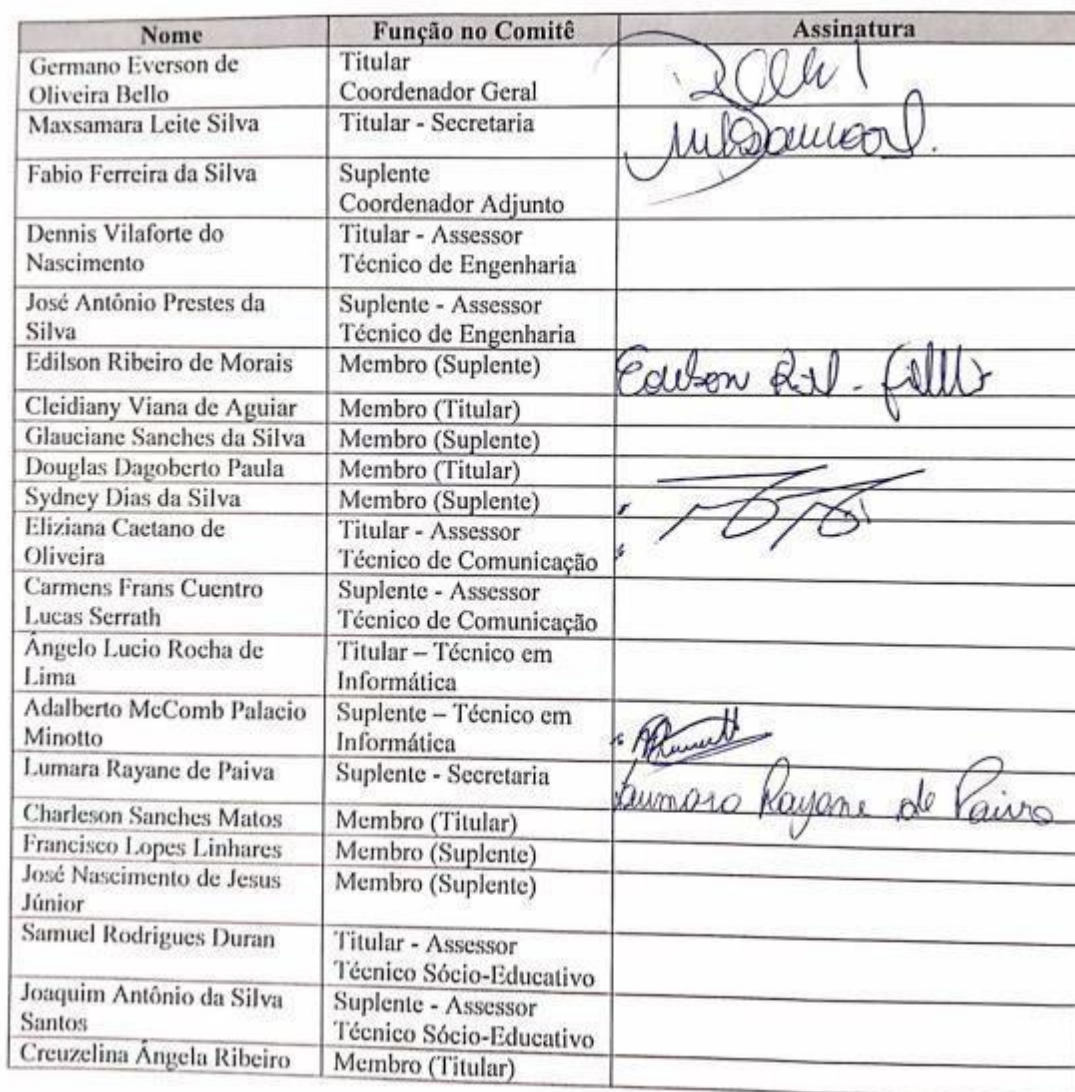 Nome Função no Comitê Assinatura
Germano Everson de Titular
Oliveira Bello Coordenador Geral
Maxsamara Leite Silva Titular - Secretaria
Fabio Ferreira da Silva Suplente
Coordenador Adjunto
Dennis Vilaforte do Titular - Assessor
Nascimento Técnico de Engenharia
José Antônio Prestes da Suplente - Assessor
Silva Técnico de Engenharia
Edilson Ribeiro de Morais Membro (Suplente)
Cleidiany Viana de Aguiar Membro (Titular)
Glauciane Sanches da Silva Membro (Suplente)
Douglas Dagoberto Paula Membro (Titular)
Sydney Dias da Silva Membro (Suplente)
Eliziana Caetano de Titular - Assessor
Oliveira Técnico de Comunicação
Carmens Frans Cuentro Suplente - Assessor
Lucas Serrath Técnico de Comunicação
Ângelo Lucio Rocha de Titular – Técnico em
Lima Informática
Adalberto McComb Palacio Suplente – Técnico em
Minotto Informática
Lumara Rayane de Paiva Suplente - Secretaria Laumara Rayane de Paiva
Charleson Sanches Matos Membro (Titular)
Francisco Lopes Linhares Membro (Suplente)
José Nascimento de Jesus Membro (Suplente)
Júnior
Samuel Rodrigues Duran Titular - Assessor
Técnico Sócio-Educativo
Joaquim Antônio da Silva Suplente - Assessor
Santos Técnico Sócio-Educativo
Creuzelina Ângela Ribeiro Membro (Titular)